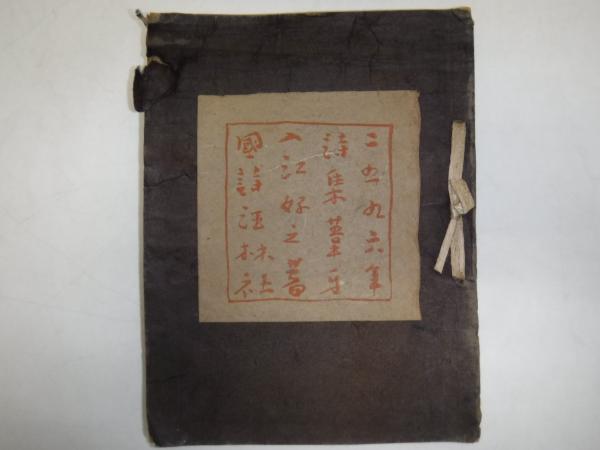 二五九六年
詩集葦牙
入江好之著
國詩評林社